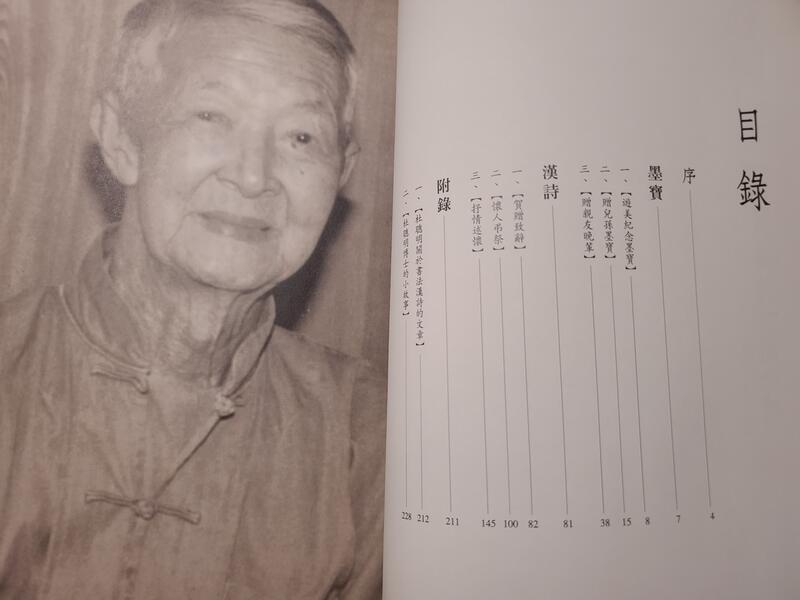 目錄
序 4
墨寶 7
一、【遊美紀念墨寶】 8
二、【贈兒孫墨寶】 15
三、【贈親友晚輩】 38
漢詩 81
一、【賀贈致辭】 82
二、【懷人弔祭】 100
三、【抒情述懷】 145
附錄 211
一、【杜聰明關於書法漢詩的文章】 212
二、【杜聰明博士的小故事】 228